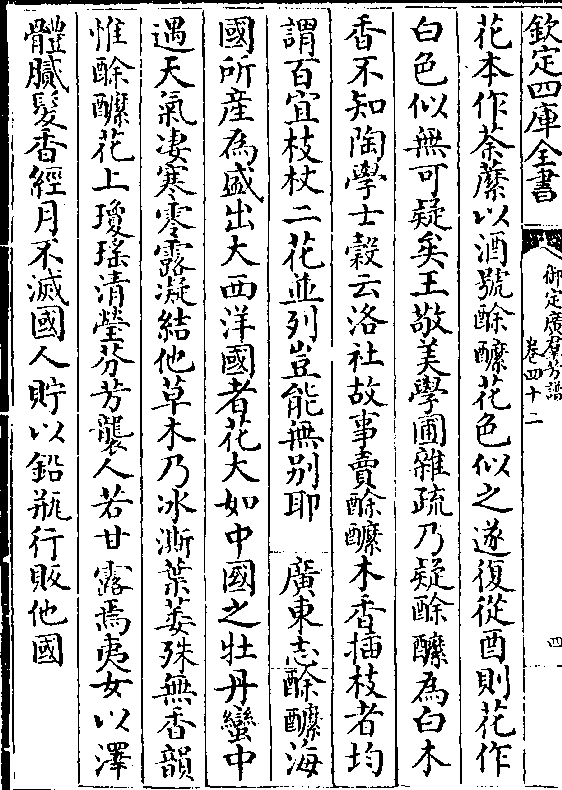 欽定四庫全書
御定廣羣芳譜
卷四十二
四
花本作荼蘼以酒號酴醿花色似之遂復從酉則花作
白色似無可疑矣王敬美學圃雜疏乃疑酴醿為白木
香不知陶學士穀云洛社故事賣酴醿木香插枝者均
謂百宜枝杖二花並列豈能無别耶　廣東志酴醿海
國所産為盛出大西洋國者花大如中國之牡丹蠻中
遇天氣凄寒零露凝結他草木乃冰澌葉萎殊無香韻
惟酴醿花上瓊瑤清瑩芬芳襲人若甘露焉夷女以澤
體膩髮香經月不滅國人貯以鉛瓶行販他國